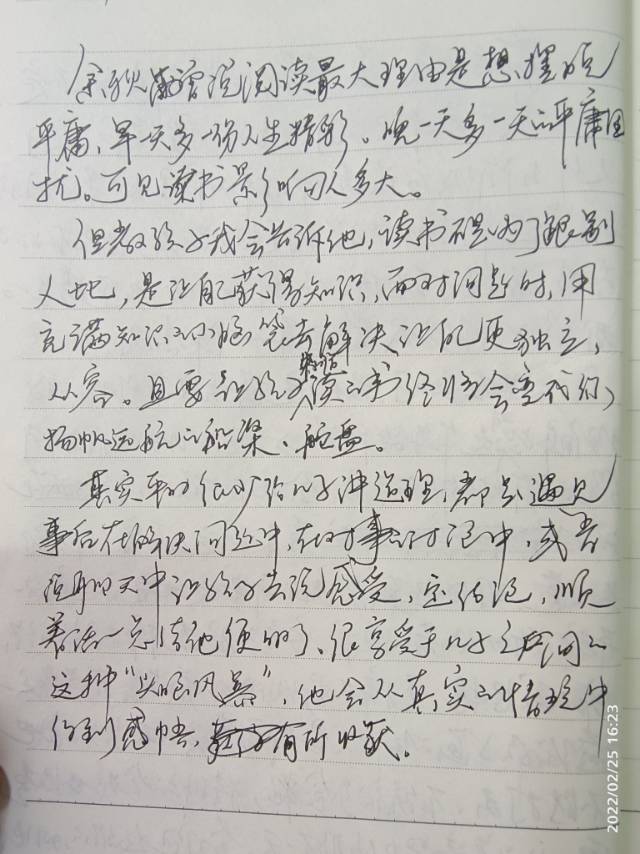 余秋雨曾说阅读最大理由是想摆脱
平庸,早一天多一份人生精彩。晚一天多一天的平庸困
扰。可见读书影响人多大。
但教孩子我会告诉他,读书不是为了
人地,是让自己获得知识,面对问题时,用
充满知识的小脑袋去解决让自己更独立、
从容。且要让孩子知道读的书终将会变成你
扬帆远航的船桨、舵盘。
其实平时很少给儿子讲道理,都是遇见
事后在解决问题中,在对事的讨论中,或者
聊天中让孩子去说感受,定结论,顺
着话一总结他便明了、很享受于儿子之间的
这种“头脑风暴”,他会从真实的情境中
得到感悟,有所收获。
2022/02/25 16:23